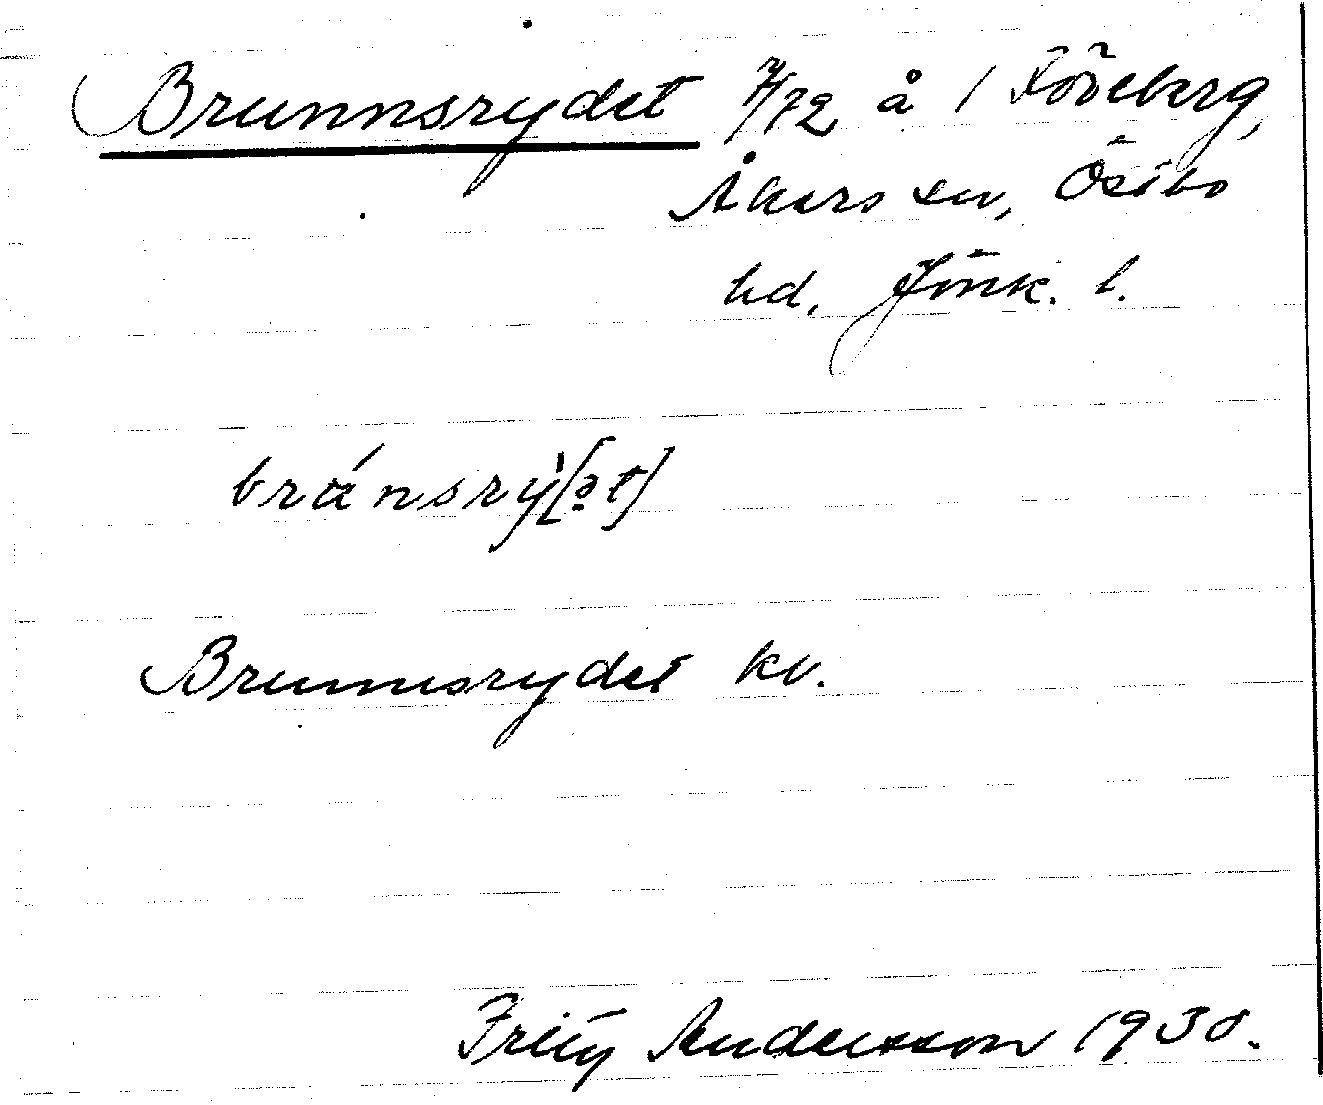 Brunnsrydet 7/72 å 1 Löreberg,
Åkers sn, Östbo
hd, Jönk. l.
bránsrỳ[ət]
Brunnsrydet kv.
Fritz Andersson 1930.